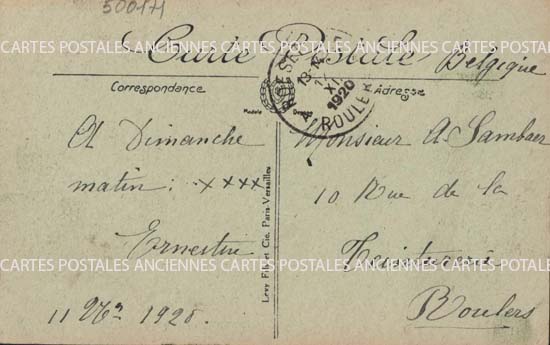 500171
Carte Postale
Belgique
Correspondance
Adresse
Modèle Déposé
13-14
XI
1920
ROULE
A Dimanche
matin: xxxx
Ernestine
11 9bre 1920.
Levy Fils et Cie, Paris-Versailles
Monsieur A. Sambaer
10 Rue de la
Teinturerie
Roulers
CARTES POSTALES ANCIENNES CARTES POSTALES ANCIENNES CARTES POSTALES ANCIENNES
CARTES POSTALES ANCIENNES CARTES POSTALES ANCIENNES CARTES POSTALES ANCIENNES